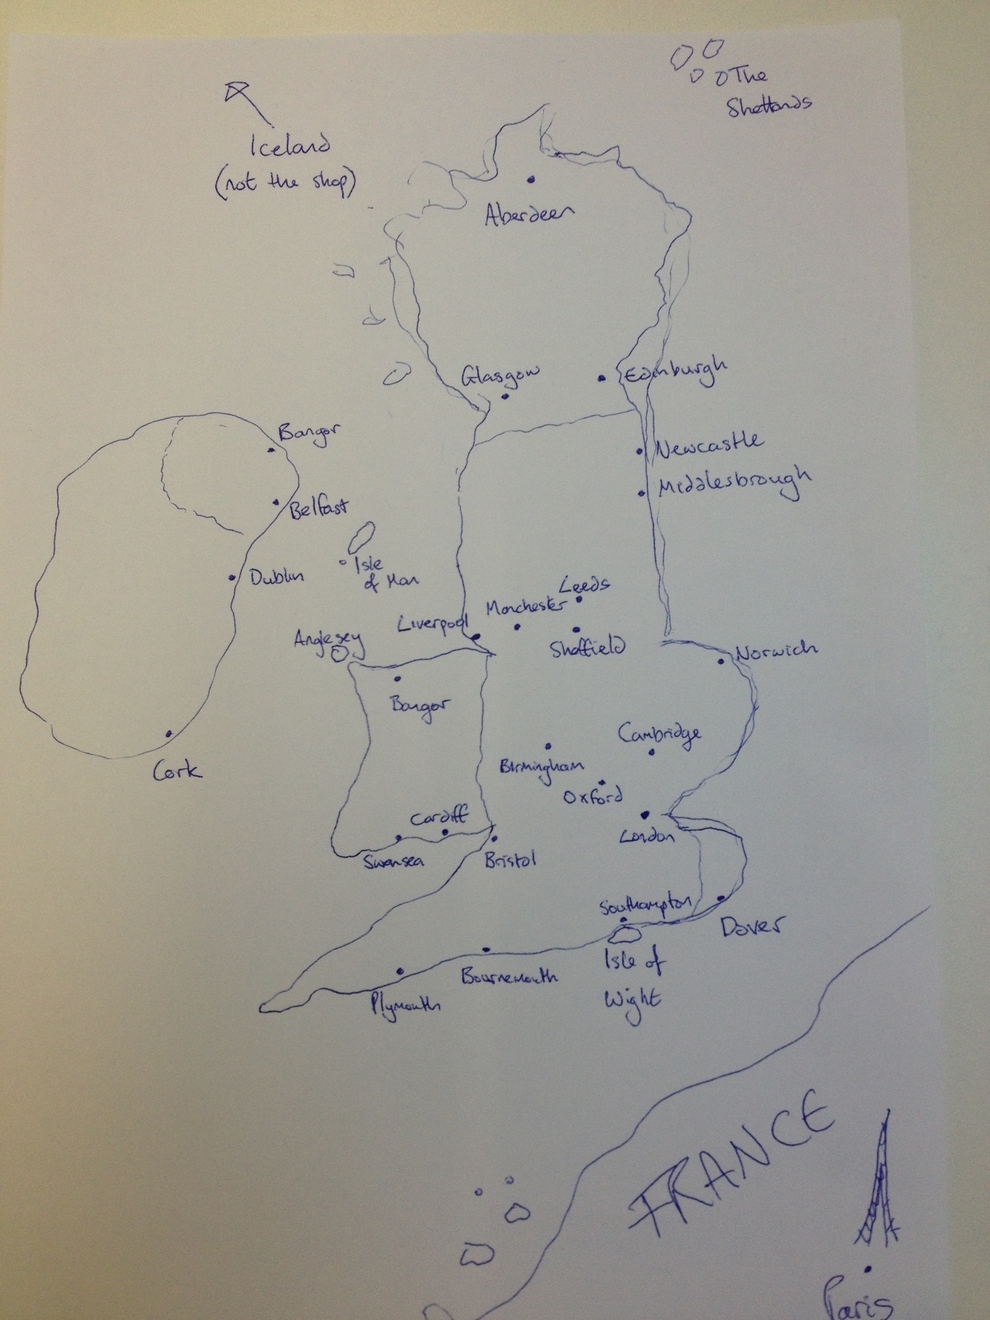 The
Shetlands
Iceland
(not the shop)
Aberdeen
Glasgow
Edinburgh
Bangor
Newcastle
Middlesbrough
Belfast
Isle
of Man
Dublin
Leeds
Manchester
Liverpool
Sheffield
Anglesey
Norwich
Bangor
Cambridge
Birmingham
Oxford
Cork
Cardiff
London
Swansea
Bristol
Southampton
Dover
Isle of
Wight
Bournemouth
Plymouth
FRANCE
Paris